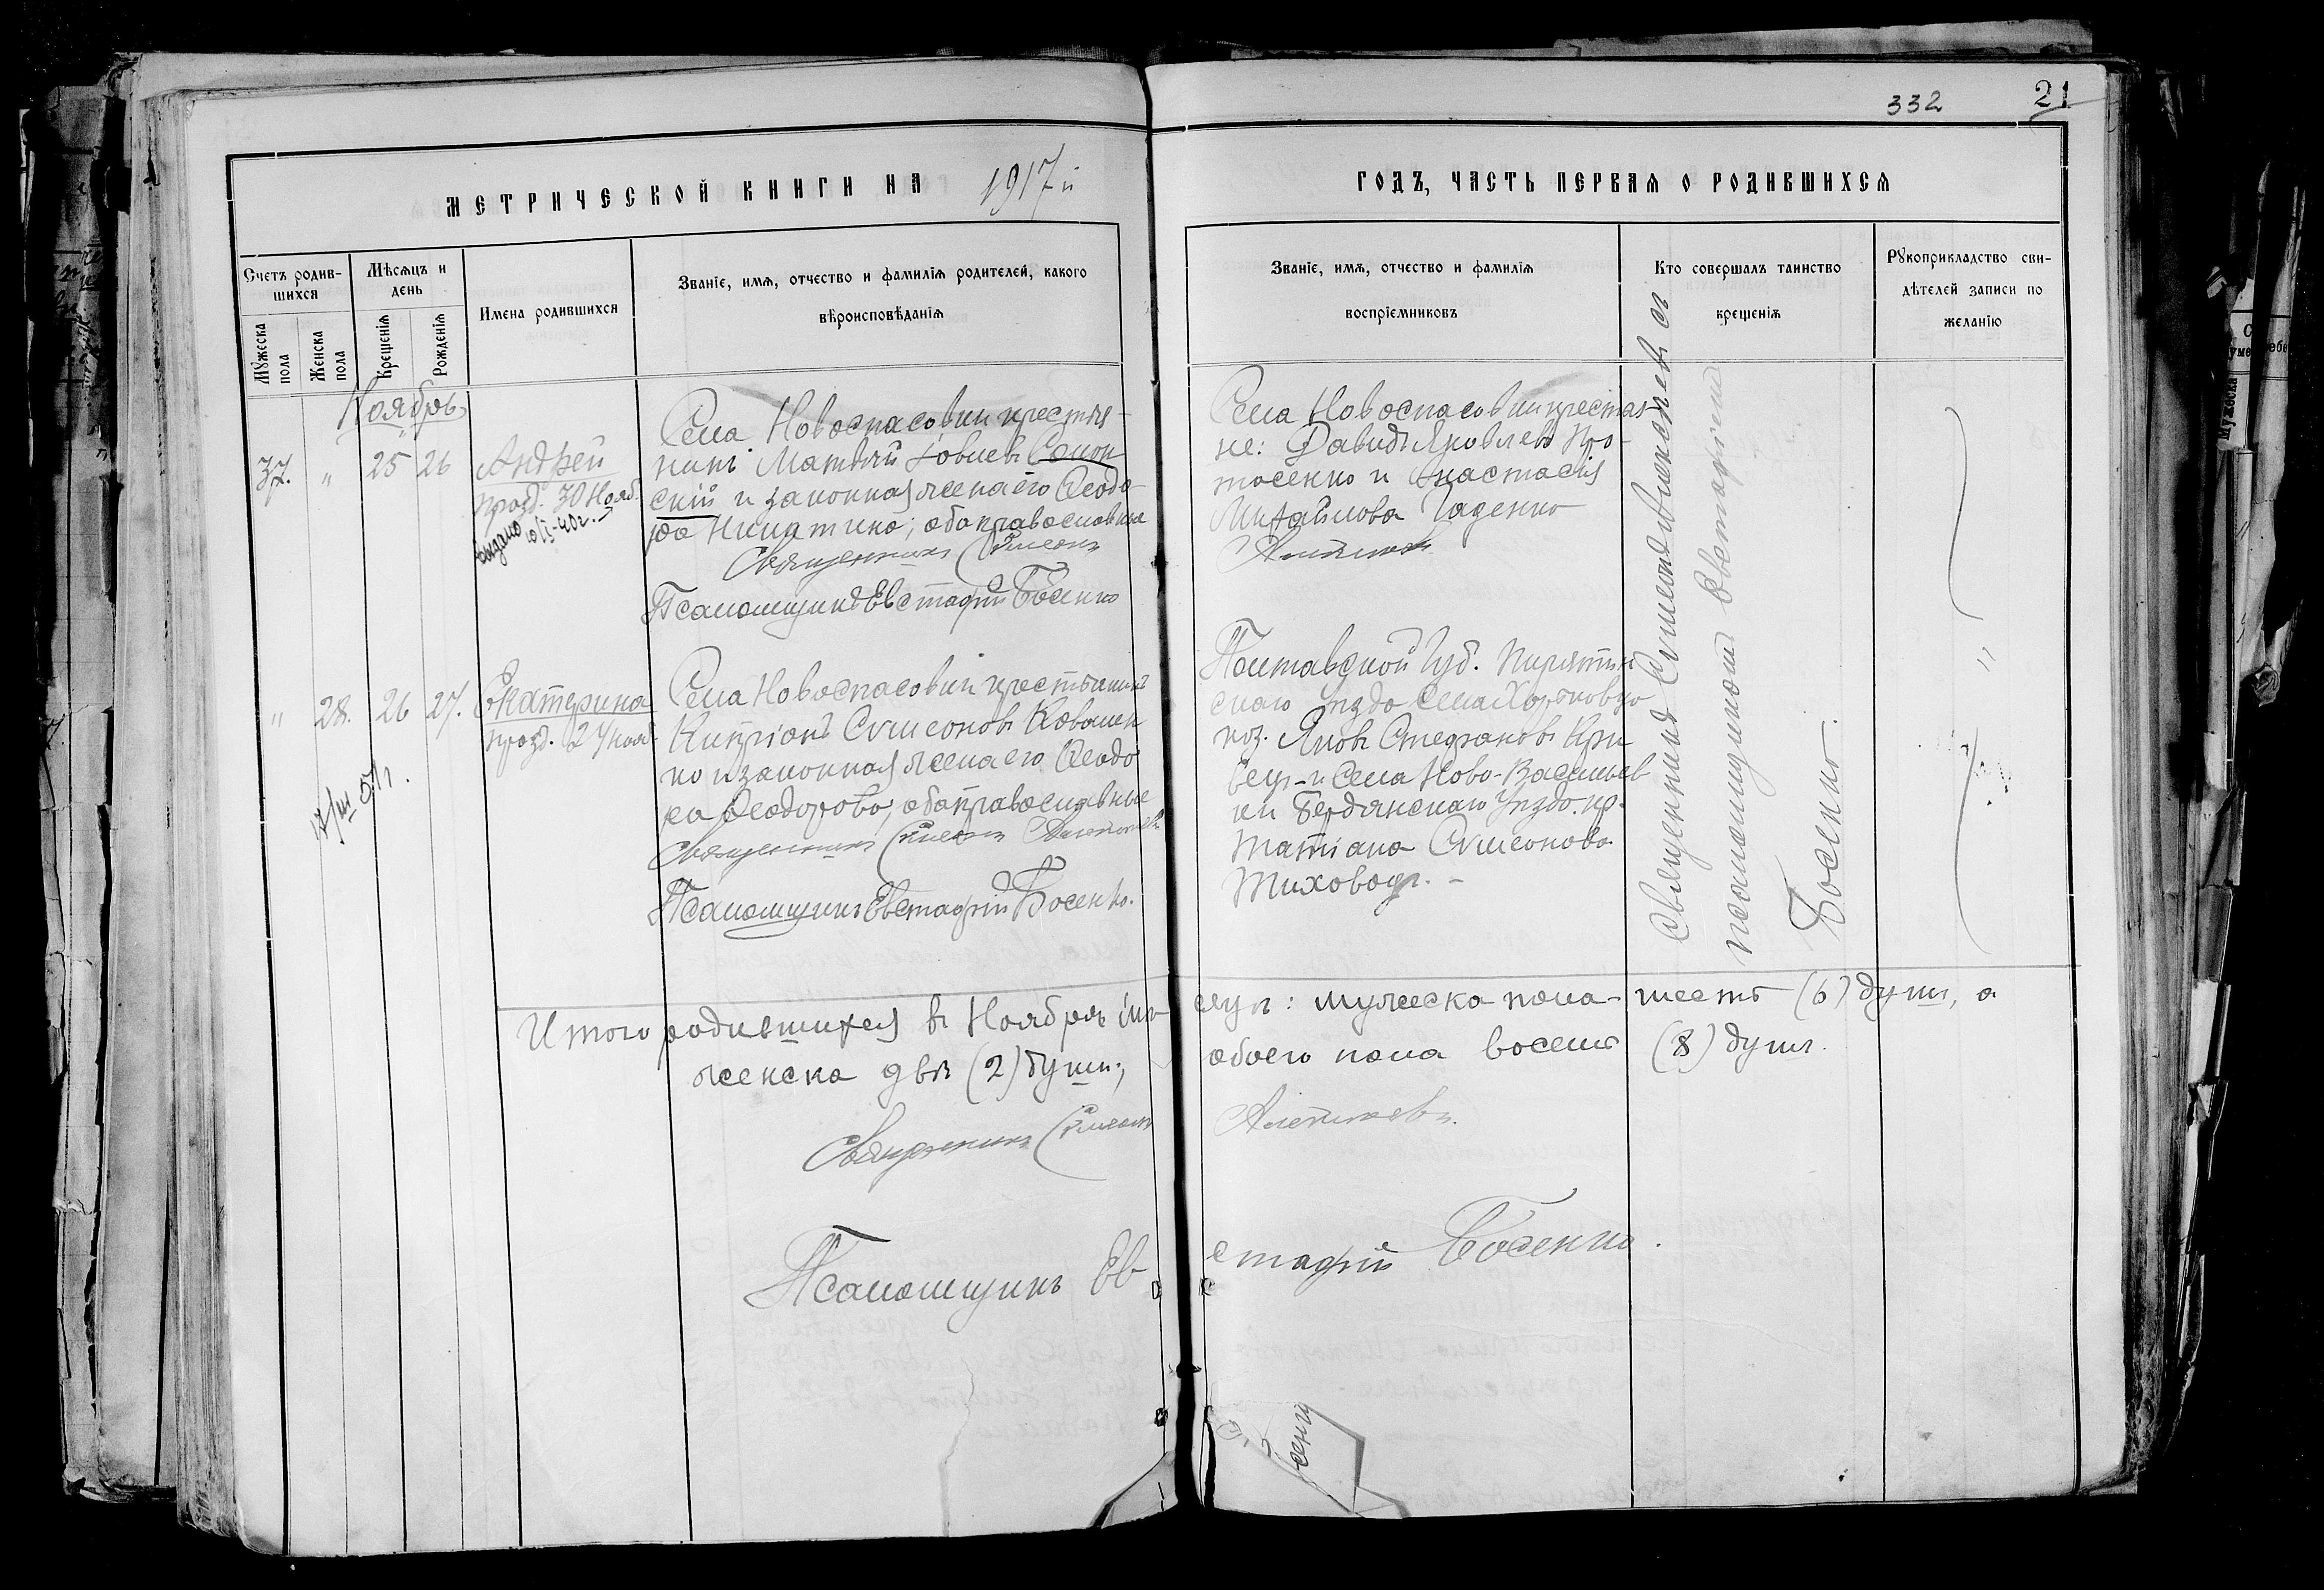 332
21
МЕТРИЧЕСКОЙ КНИГИ НА 1917й
ГОДЪ, ЧАСТЬ ПЕРВАЯ О РОДИВШИХСЯ
Счетъ родив-
шихся
Мужеска
пола
Женска
пола
Мѣсяцъ и
день
Крещенія
Рожденія
Имена родившихся
Званіе, имя, отчество и фамилія родителей, какого
вѣроисповѣданія
Званіе, имя, отчество и фамилія
воспріемниковъ
Кто совершалъ таинство
крещенія
Рукоприкладство сви-
дѣтелей записи по
желанію
Ноябрь
37. " 25 26
Андрей
празд. 30 Нояб.
выдано
Села Новоспасовки крестья-
нинъ Матвѣй Іовлевъ
скій и законная жена его Ѳеодо-
ра Никитина; оба православные
Священникъ Симеонъ
Псаломщикъ Евстафій Босенко
Села Новоспасовки крестья-
не: Давидъ Яковлевъ Про-
тосенко и Анастасія
Михайлова Гаденко
" 28. 26 27.
Екатерина
празд. 24 нояб.
Села Новоспасовки крестьянинъ
Кипріанъ Сѵмеоновъ Ковален-
ко и законная жена его Ѳеодо-
ра Ѳеодорова; оба православные
Священникъ Симеонъ
Псаломщикъ Евстафій Босенко.
Полтавской Губ. Пирятин
скаго уѣзда села Харьковцо
коз. Яковъ Стефановъ Кри
вецъ и Села Ново-Васильев
ки Бердянскаго Уѣзда кр.
Татіана Сѵмеонова
Тиховодъ. -
Священникъ Сѵмеонъ Алексѣевъ съ
псаломщикомъ Евстафіемъ
Босенко.
Итого родившихся въ Ноябрѣ мѣ- сяцѣ: мужеска пола - шесть (6) душъ, а
женска двѣ (2) души; обоего пола восемь (8) душъ.
Священникъ Симеонъ
Псаломщикъ Ев стафій Босенко.